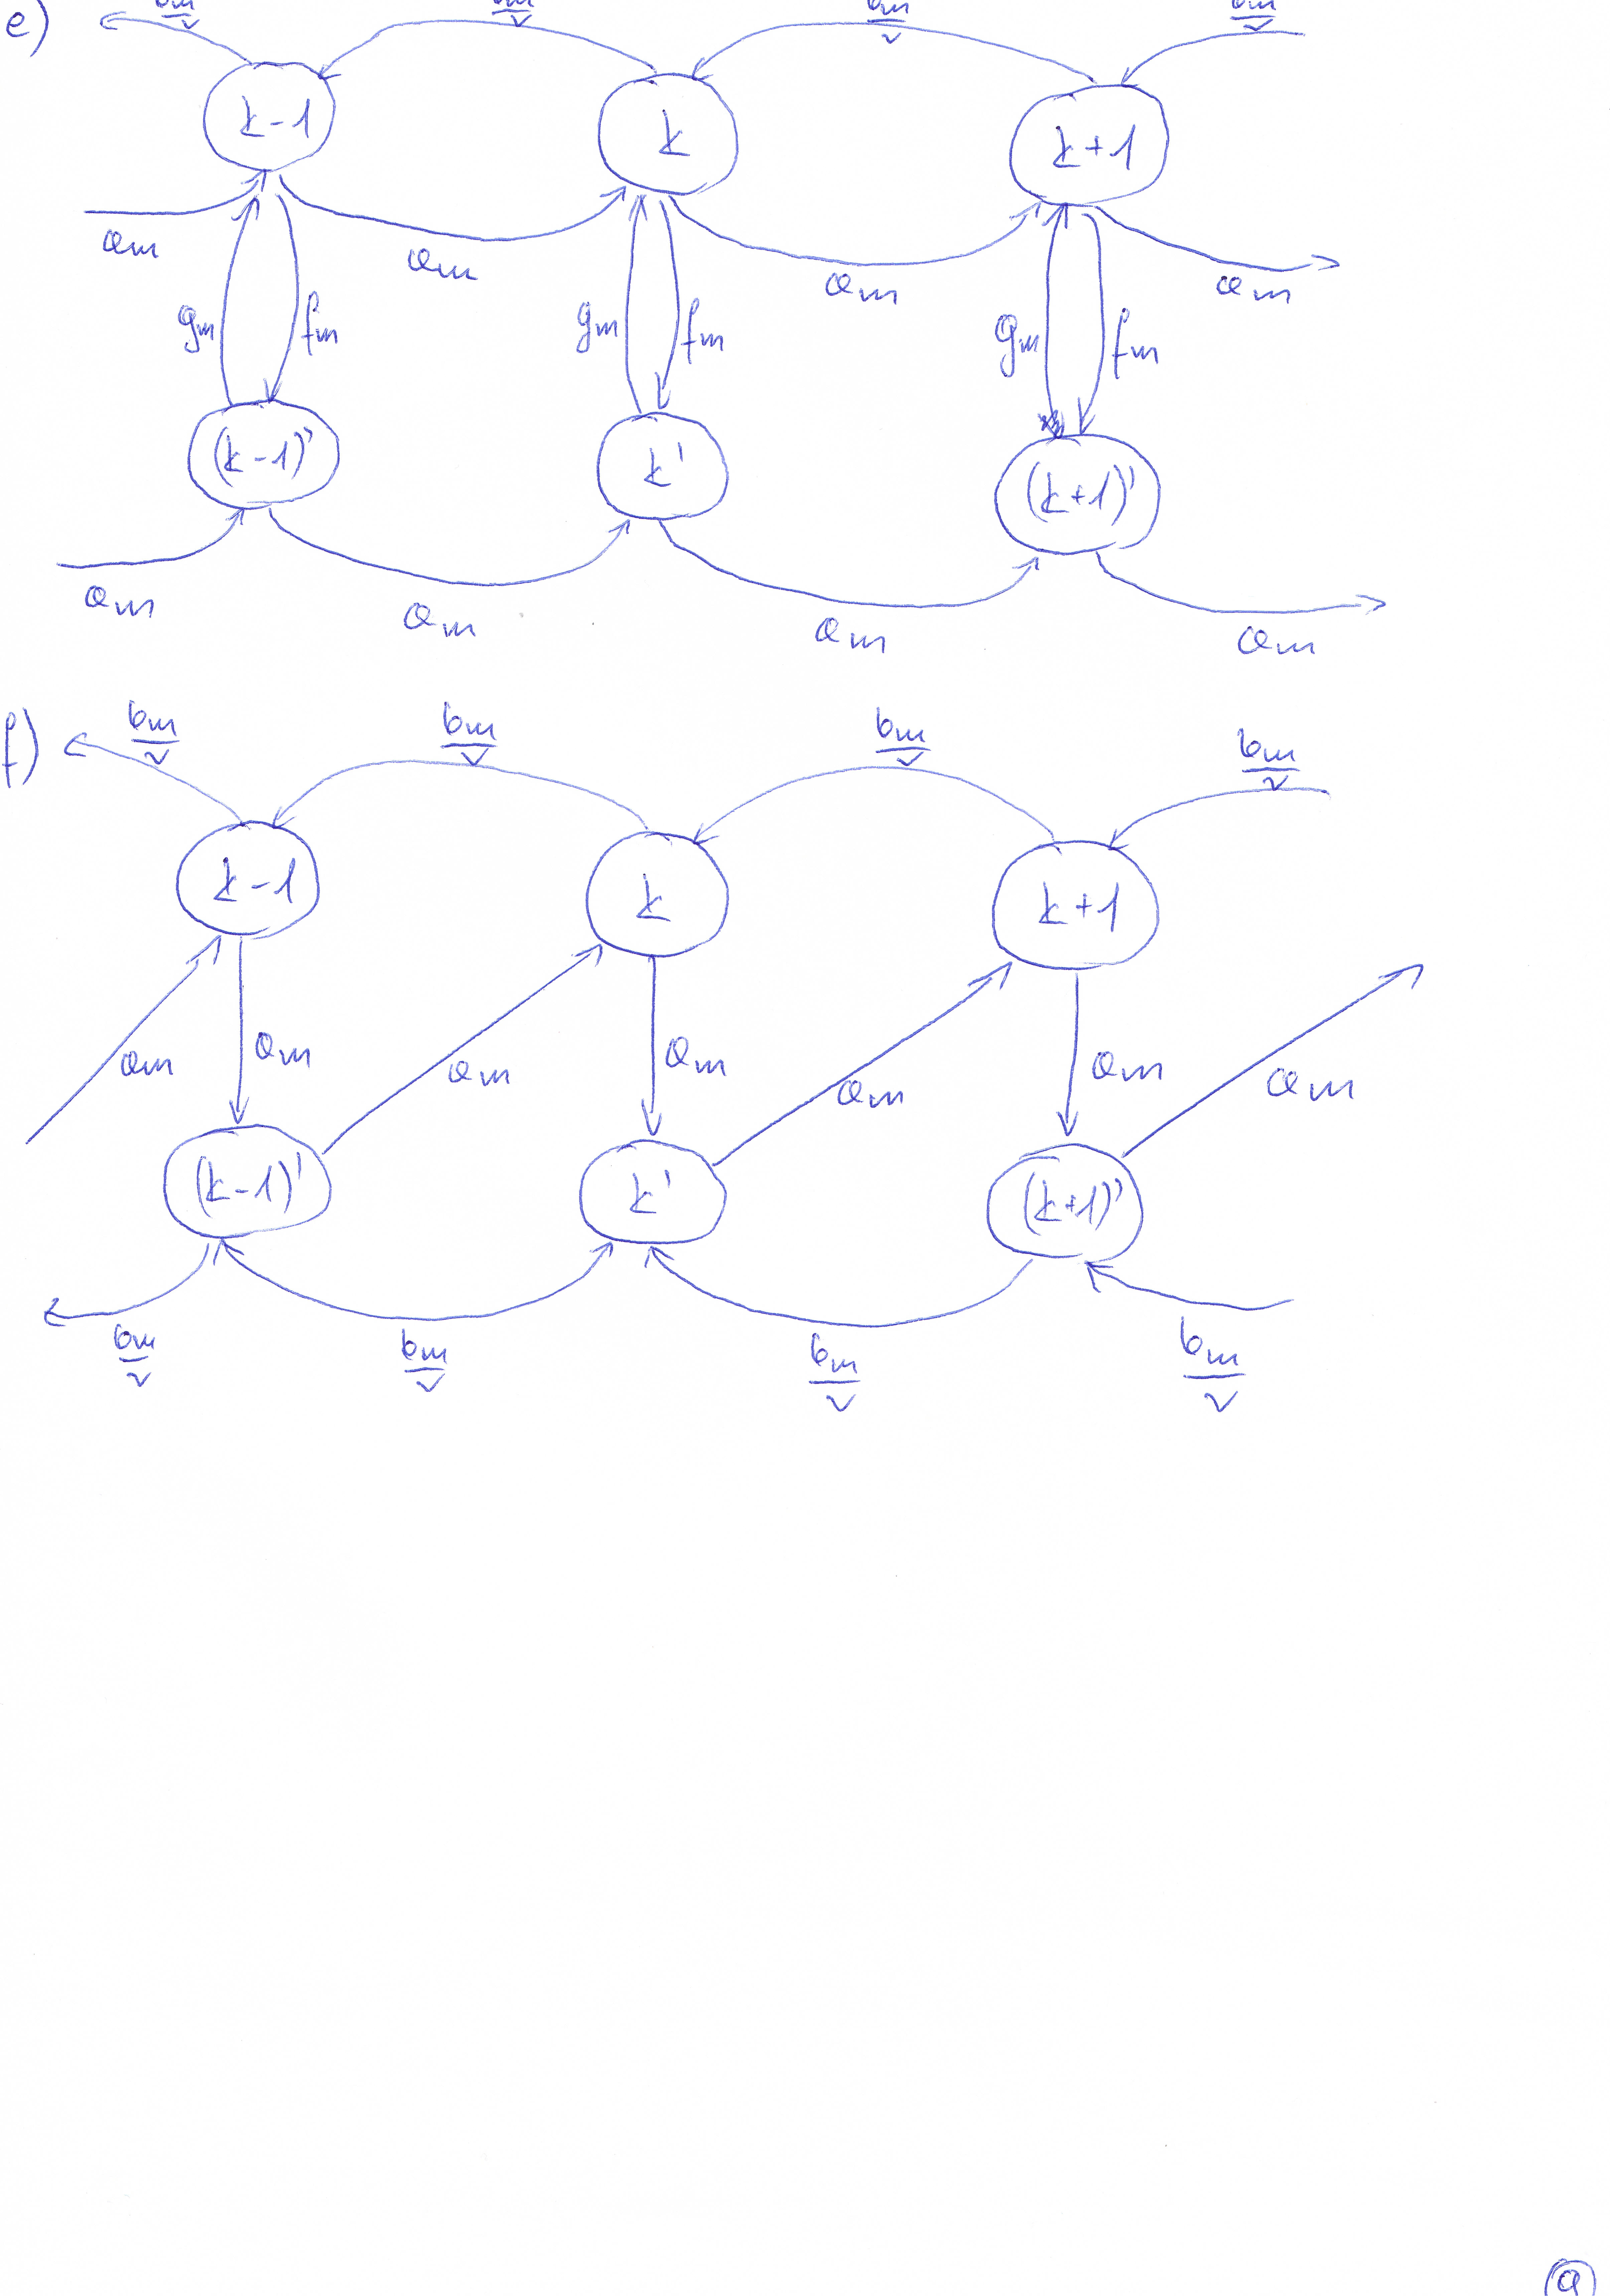 e) bm/v bm/v bm/v bm/v
k-1 k k+1
am am am am
gm fm gm fm gm fm
(k-1)' k' (k+1)'
am am am am
f) bm/v bm/v bm/v bm/v
k-1 k k+1
am am am am am am am
(k-1)' k' (k+1)'
bm/v bm/v bm/v bm/v